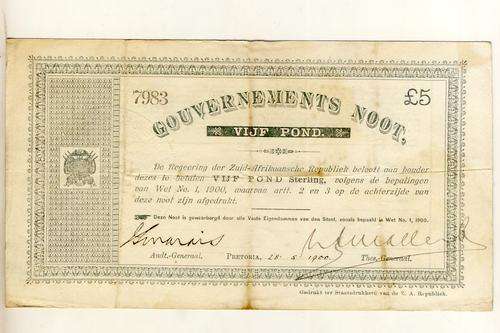 7983
£5
GOUVERNEMENTS NOOT,
VIJF POND.
De Regeering der Zuid-Afrikaansche Republiek belooft aan houder
dezes te betalen VIJF POND Sterling, volgens de bepalingen
van Wet No. 1, 1900, waarvan artt. 2 en 3 op de achterzijde van
deze noot zijn afgedrukt.
Deze Noot is gewaarborgd door alle Vaste Eigendommen van den Staat, zooals bepaald in Wet No. 1, 1900.
Audt.-Generaal.
PRETORIA, 28 5 1900
Thes.-Generaal.
Gedrukt ter Staatsdrukkerij van de Z. A. Republiek.